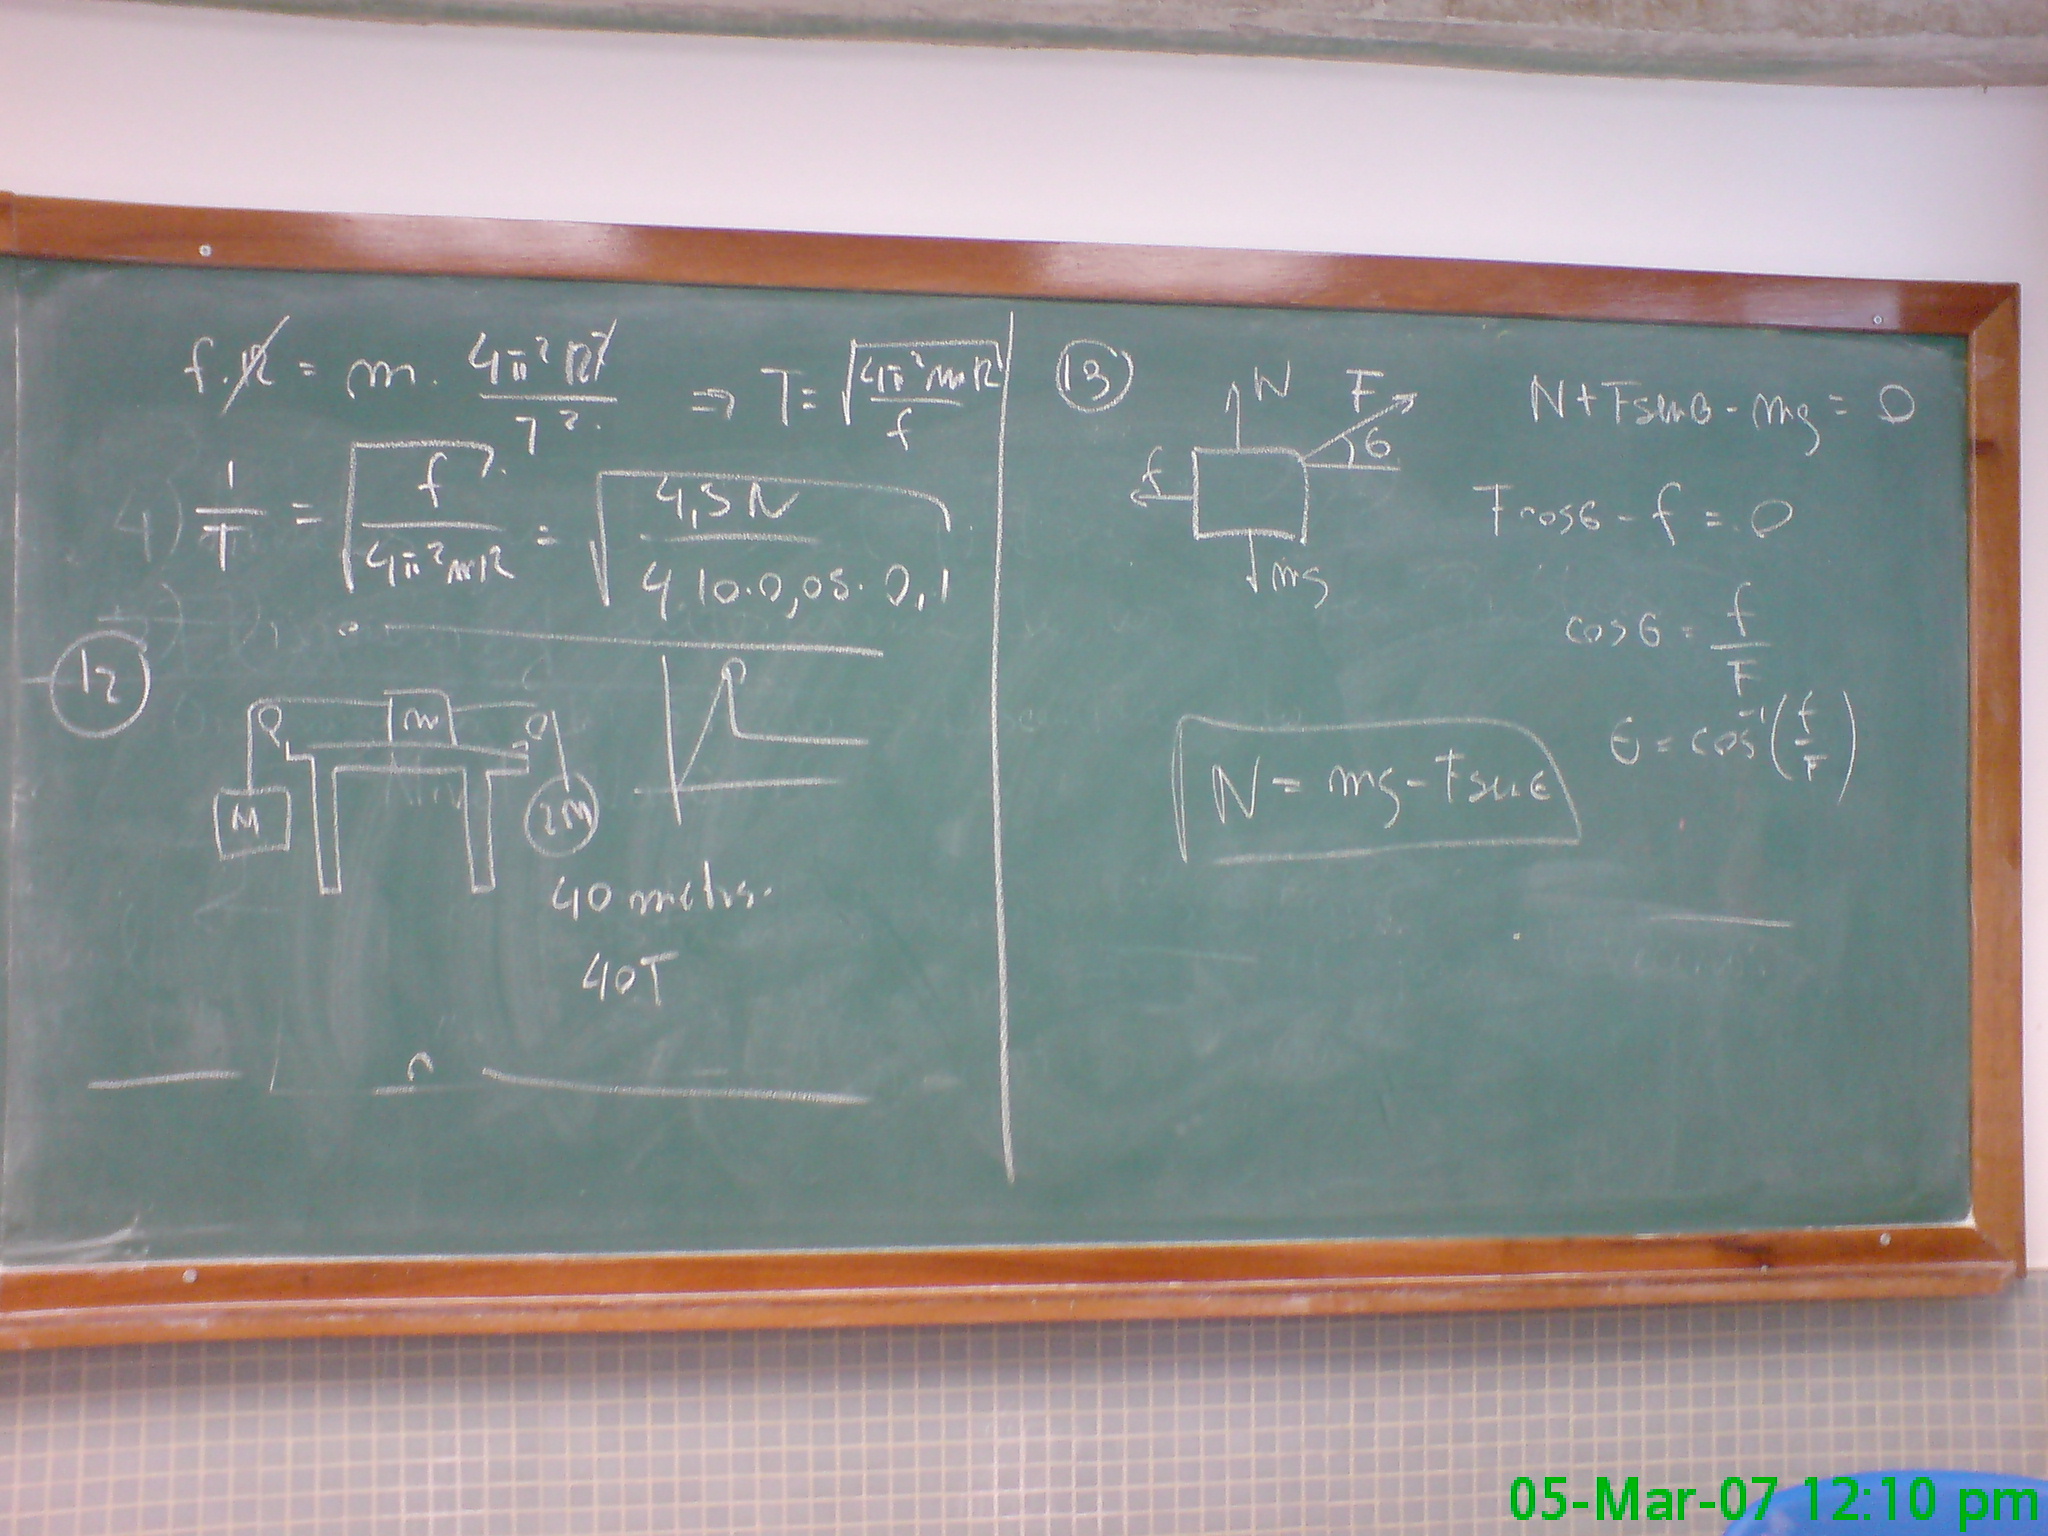 f.R = m. 4π²R² / T² ⇒ T = √(4π²mR / f)
4) 1/T = √(f / 4π²mR) = √(4,5N / 4.10.0,05.0,1)
12
m
M
2M
40 metros.
40T
13
N
F
θ
f
mg
N + F sen θ - mg = 0
F cos θ - f = 0
cos θ = f / F
θ = cos⁻¹(f / F)
N = mg - F sen θ
05-Mar-07 12:10 pm